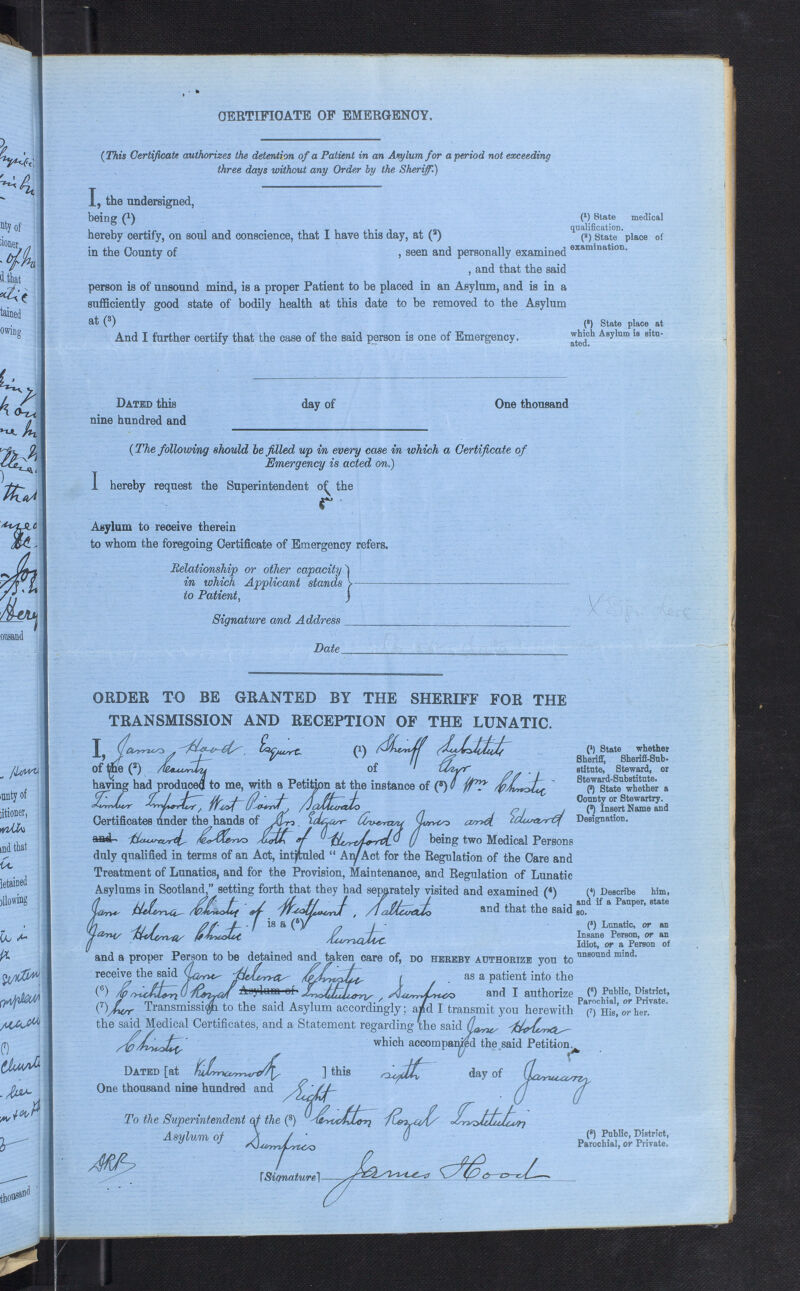 CERTIFICATE OF EMERGENCY.
(This Certificate authorizes the detention of a Patient in an Asylum for a period not exceeding
three days without any Order by the Sheriff.)
I, the undersigned,
being (1)
hereby certify, on soul and conscience, that I have this day, at (2)
in the County of , seen and personally examined
, and that the said
person is of unsound mind, is a proper Patient to be placed in an Asylum, and is in a
sufficiently good state of bodily health at this date to be removed to the Asylum
at (3)
And I further certify that the case of the said person is one of Emergency.
(1) State medical
qualification.
(2) State place of
examination.
(3) State place at
which Asylum is situ-
ated.
DATED this day of One thousand
nine hundred and
(The following should be filled up in every case in which a Certificate of
Emergency is acted on.)
I hereby request the Superintendent of the
Asylum to receive therein
to whom the foregoing Certificate of Emergency refers.
Relationship or other capacity
in which Applicant stands
to Patient,
Signature and Address
Date
ORDER TO BE GRANTED BY THE SHERIFF FOR THE
TRANSMISSION AND RECEPTION OF THE LUNATIC.
I, James Hood Esquire (1) Sheriff Substitute
of the (2) County of Ayr
having had produced to me, with a Petition at the instance of (3) Wm Christie
Timber Importer, West Point, Saltcoats
Certificates under the hands of Drs. Edgar Averay Jones and Edward
and Howard Collens both of Hereford being two Medical Persons
duly qualified in terms of an Act, intituled "An Act for the Regulation of the Care and
Treatment of Lunatics, and for the Provision, Maintenance, and Regulation of Lunatic
Asylums in Scotland," setting forth that they had separately visited and examined (4)
Jane Helena Christie of Westpoint, Saltcoats and that the said
Jane Helena Christie is a (5) lunatic
and a proper Person to be detained and taken care of, DO HEREBY AUTHORIZE you to
receive the said Jane Helena Christie as a patient into the
(6) Crichton Royal Asylum of Institution, Dumfries and I authorize
(7) her Transmission to the said Asylum accordingly; and I transmit you herewith
the said Medical Certificates, and a Statement regarding the said Jane Helena
Christie which accompanied the said Petition.
DATED [at Kilmarnock ] this sixth day of January
One thousand nine hundred and Eight
To the Superintendent of the (8) Crichton Royal Institution
Asylum of Dumfries
[Signature] James Hood
(1) State whether
Sheriff, Sheriff-Sub-
stitute, Steward, or
Steward-Substitute.
(2) State whether a
County or Stewartry.
(3) Insert Name and
Designation.
(4) Describe him,
and if a Pauper, state
so.
(5) Lunatic, or an
Insane Person, or an
Idiot, or a Person of
unsound mind.
(6) Public, District,
Parochial, or Private.
(7) His, or her.
(8) Public, District,
Parochial, or Private.